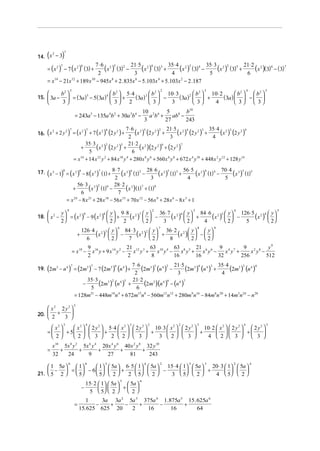 14. (x² − 3)⁷
= (x²)⁷ − 7(x²)⁶(3) + 7·6/2 (x²)⁵(3)² − 21·5/3 (x²)⁴(3)³ + 35·4/4 (x²)³(3)⁴ − 35·3/5 (x²)²(3)⁵ + 21·2/6 (x²)(3)⁶ − (3)⁷
= x¹⁴ − 21x¹² + 189x¹⁰ − 945x⁸ + 2.835x⁶ − 5.103x⁴ + 5.103x² − 2.187
15. (3a − b²/3)⁵ = (3a)⁵ − 5(3a)⁴(b²/3) + 5·4/2 (3a)³(b²/3)² − 10·3/3 (3a)²(b²/3)³ + 10·2/4 (3a)(b²/3)⁴ − (b²/3)⁵
= 243a⁵ − 135a⁴b² + 30a³b⁴ − 10/3 a²b⁶ + 5/27 ab⁸ − b¹⁰/243
16. (x² + 2y²)⁷ = (x²)⁷ + 7(x²)⁶(2y²) + 7·6/2 (x²)⁵(2y²)² + 21·5/3 (x²)⁴(2y²)³ + 35·4/4 (x²)³(2y²)⁴
+ 35·3/5 (x²)²(2y²)⁵ + 21·2/6 (x²)(2y²)⁶ + (2y²)⁷
= x¹⁴ + 14x¹²y² + 84x¹⁰y⁴ + 280x⁸y⁶ + 560x⁶y⁸ + 672x⁴y¹⁰ + 448x²y¹² + 128y¹⁴
17. (x³ − 1)⁸ = (x³)⁸ − 8(x³)⁷(1) + 8·7/2 (x³)⁶(1)² − 28·6/3 (x³)⁵(1)³ + 56·5/4 (x³)⁴(1)⁴ − 70·4/5 (x³)³(1)⁵
+ 56·3/6 (x³)²(1)⁶ − 28·2/7 (x³)(1)⁷ + (1)⁸
= x²⁴ − 8x²¹ + 28x¹⁸ − 56x¹⁵ + 70x¹² − 56x⁹ + 28x⁶ − 8x³ + 1
18. (x² − y/2)⁹ = (x²)⁹ − 9(x²)⁸(y/2) + 9·8/2 (x²)⁷(y/2)² − 36·7/3 (x²)⁶(y/2)³ + 84·6/4 (x²)⁵(y/2)⁴ − 126·5/5 (x²)⁴(y/2)⁵
+ 126·4/6 (x²)³(y/2)⁶ − 84·3/7 (x²)²(y/2)⁷ + 36·2/8 (x²)(y/2)⁸ − (y/2)⁹
= x¹⁸ − 9/2 x¹⁶y + 9x¹⁴y² − 21/2 x¹²y³ + 63/8 x¹⁰y⁴ − 63/16 x⁸y⁵ + 21/16 x⁶y⁶ − 9/32 x⁴y⁷ + 9/256 x²y⁸ − y⁹/512
19. (2m³ − n⁴)⁷ = (2m³)⁷ − 7(2m³)⁶(n⁴) + 7·6/2 (2m³)⁵(n⁴)² − 21·5/3 (2m³)⁴(n⁴)³ + 35·4/4 (2m³)³(n⁴)⁴
− 35·3/5 (2m³)²(n⁴)⁵ + 21·2/6 (2m³)(n⁴)⁶ − (n⁴)⁷
= 128m²¹ − 448m¹⁸n⁴ + 672m¹⁵n⁸ − 560m¹²n¹² + 280m⁹n¹⁶ − 84m⁶n²⁰ + 14m³n²⁴ − n²⁸
20. (x²/2 + 2y²/3)⁵
= (x²/2)⁵ + 5(x²/2)⁴(2y²/3) + 5·4/2 (x²/2)³(2y²/3)² + 10·3/3 (x²/2)²(2y²/3)³ + 10·2/4 (x²/2)(2y²/3)⁴ + (2y²/3)⁵
= x¹⁰/32 + 5x⁸y²/24 + 5x⁶y⁴/9 + 20x⁴y⁶/27 + 40x²y⁸/81 + 32y¹⁰/243
21. (1/5 − 5a/2)⁶ = (1/5)⁶ − 6(1/5)⁵(5a/2) + 6·5/2 (1/5)⁴(5a/2)² − 15·4/3 (1/5)³(5a/2)³ + 20·3/4 (1/5)²(5a/2)⁴
− 15·2/5 (1/5)(5a/2)⁵ + (5a/2)⁶
= 1/15.625 − 3a/625 + 3a²/20 − 5a³/2 + 375a⁴/16 − 1.875a⁵/16 + 15.625a⁶/64